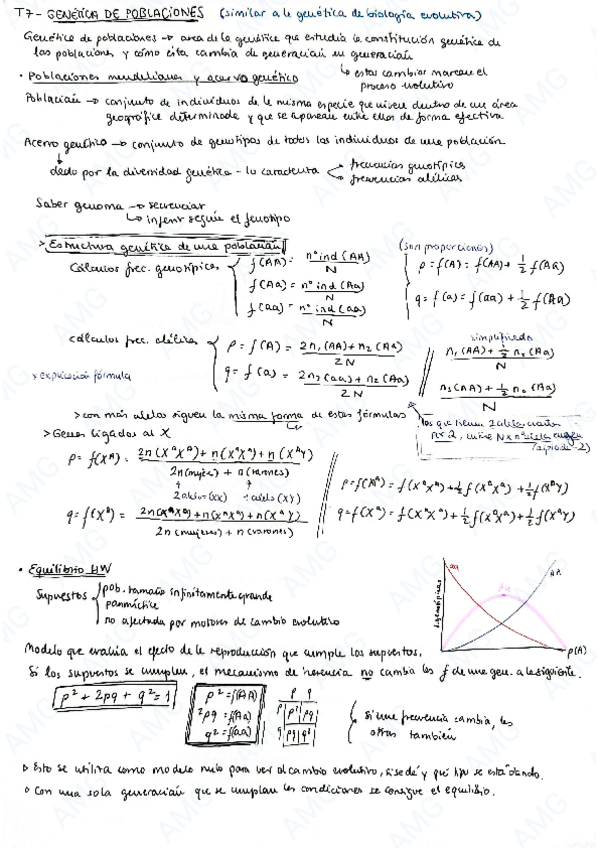 T7- GENÉTICA DE POBLACIONES (similar a la genética de biología evolutiva)
Genética de poblaciones → area de la genética que estudia la constitución genética de
las poblaciones y cómo esta cambia de generación en generación
↳ estos cambios marcan el
proceso evolutivo
• Poblaciones mendelianas y acervo genético
Población → conjunto de individuos de la misma especie que viven dentro de un área
geográfica determinada y que se aparean entre ellos de forma efectiva.
Acervo genético → conjunto de genotipos de todos los individuos de una población
dado por la diversidad genética - lo caracteriza
frecuencias genotípicas
frecuencias alélicas
Saber genoma → secuenciar
↳ inferir según el fenotipo
> Estructura genética de una población
(son proporciones)
Cálculos frec. genotípicas
f(AA) = nº ind (AA) / N
f(Aa) = nº ind (Aa) / N
f(aa) = nº ind (aa) / N
p = f(A) = f(AA) + 1/2 f(Aa)
q = f(a) = f(aa) + 1/2 f(Aa)
cálculos frec. alélica
p = f(A) = 2n₁(AA) + n₂(Aa) / 2N
q = f(a) = 2n₃(aa) + n₂(Aa) / 2N
simplificada
n₁(AA) + 1/2 n₂(Aa) / N
n₃(AA) + 1/2 n₂(Aa) / N
> explicación fórmula
> con más alelos siguen la misma forma de estas fórmulas
los que tienen 2 alelos
por 2, entre N x nº alelos
> Genes ligados al X
p = f(Xᴬ) = 2n(XᴬXᴬ) + n(XᴬXᵃ) + n(XᴬY)
2n(mujeres) + n(varones)
2 alelos (XX) 1 alelo (XY)
2n(mujeres) + n(varones)
• Equilibrio HW
Supuestos
pob. tamaño infinitamente grande
panmíctica
no afectada por motores de cambio evolutivo
aa
Aa
AA
p(A)
Modelo que evalúa el efecto de la reproducción que cumple los supuestos.
Si los supuestos se cumplen, el mecanismo de herencia no cambia las f de una gen. a la siguiente.
p² + 2pq + q² = 1
p² = f(AA)
2pq = f(Aa)
q² = f(aa)
p q
p p² pq
q pq q²
si una frecuencia cambia, las
otras también
▹ Esto se utiliza como modelo nulo para ver el cambio evolutivo, si se da y qué tipo se está dando.
▹ Con una sola generación que se cumplan las condiciones se consigue el equilibrio.